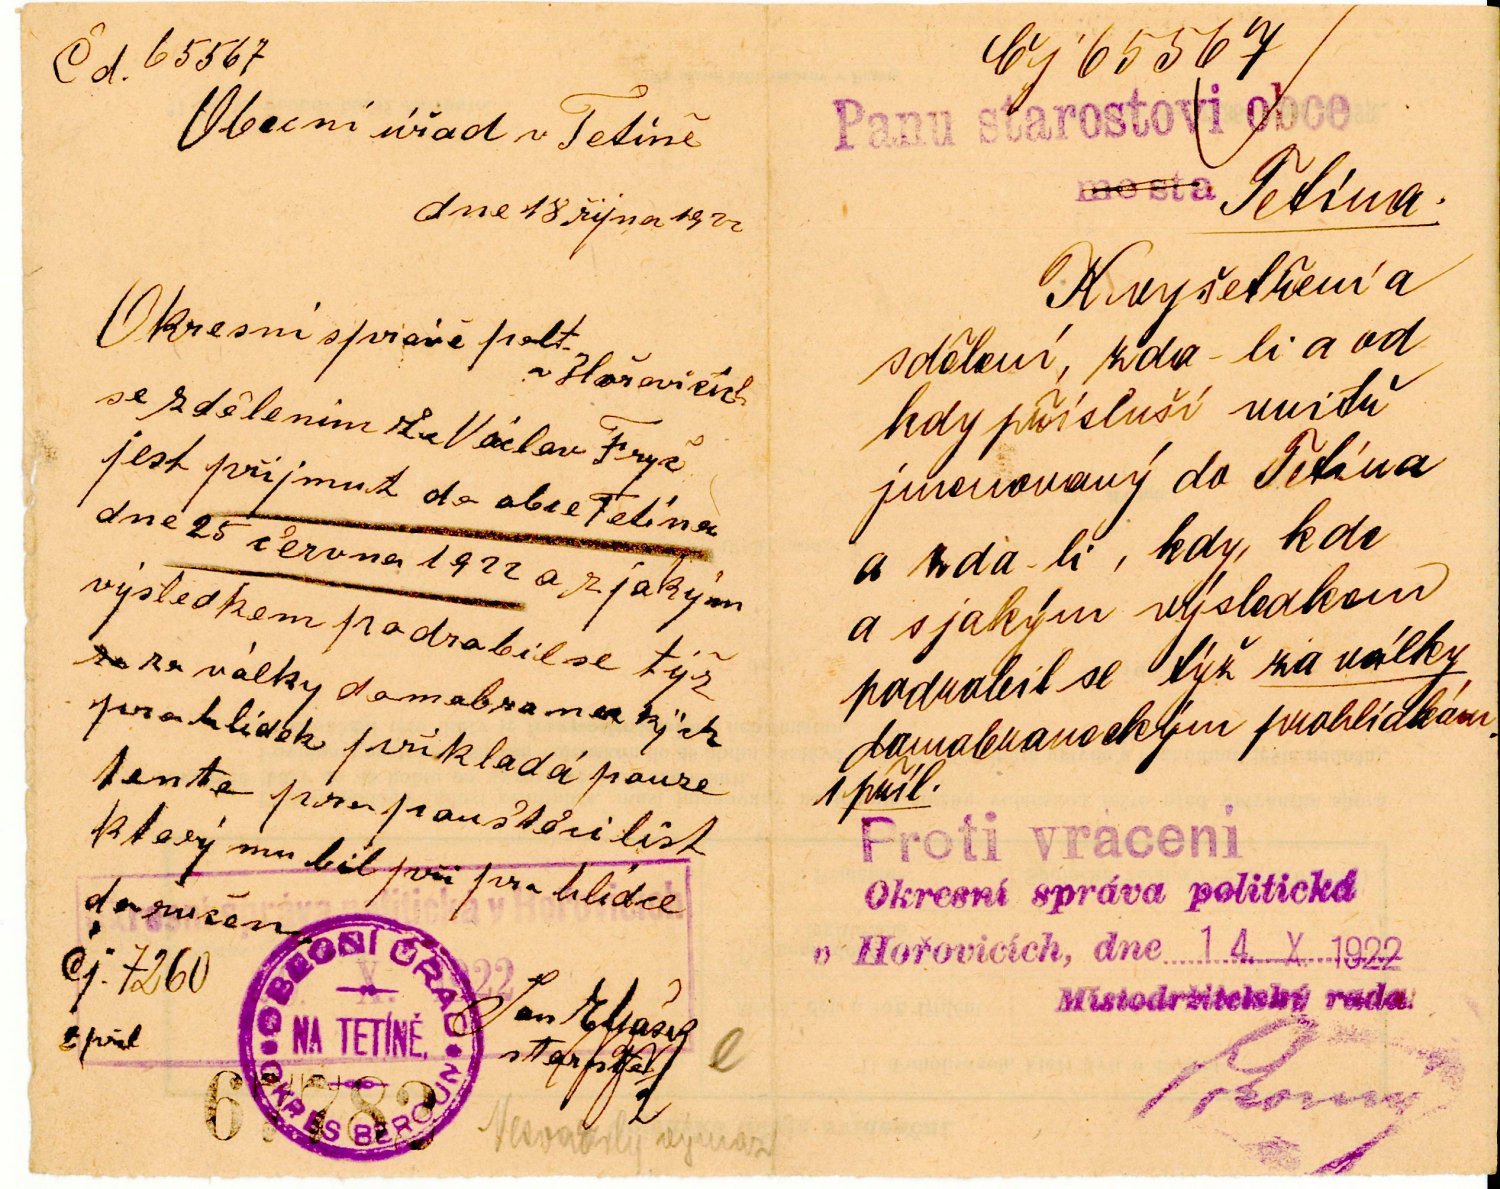 Čd. 65567
Obecní úřad v Tetíně
dne 18 října 1922
Okresní správě polt.
v Hořovicích
se zdělením že Václav Fryš
jest přijmut do obce Tetína
dne 25 června 1922 a z jakým
výsledkem podrobil se týž
za války domobraneckých
prohlídek příkladá pouze
tento propouštěcí list
který mu bil při prohlídce
doručen
Čj. 7260
2 příl
Okresní správa politická v Hořovicích
X. 1922
OBECNÍ ÚŘAD
NA TETÍNĚ.
OKRES BEROUN
Jan
starosta
Čj 65567
Panu starostovi obce
města Tetína.
K vyšetření a
sdělení, zda-li a od
kdy přísluší uvitř
jmenovaný do Tetína
a zda-li, kdy, kde
a s jakým výsledkem
podrobil se týž za války
domobraneckým prohlídkám.
1 příl.
Proti vrácení
Okresní správa politická
v Hořovicích, dne 14. X. 1922
Místodržitelský rada: